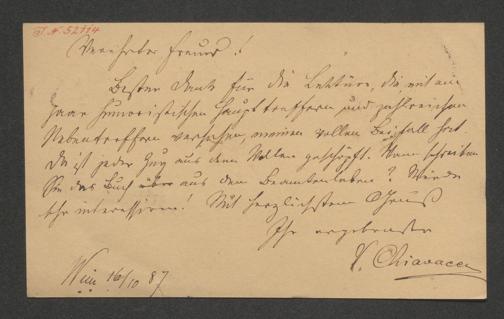 J. N. 52714
Verehrter Freund!
Besten Dank für die Lektüre, die, mit ein
paar humoristischen Haupttreffern und zahlreichen
Nebentreffern versehen, meinen vollen Beifall hat
Da ist jeder Zug aus dem Vollen geschöpft. Wann schreiben
Sie das Buch aus dem Beamtenleben? Würde
sehr interessiren! Mit herzlichstem Gruss
Ihr ergebenster
V. Chiavacci
Wien 16/10 87